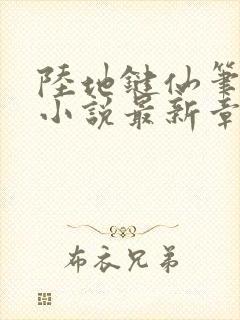 陸地鍵仙筆
小說最新章
布衣兄弟